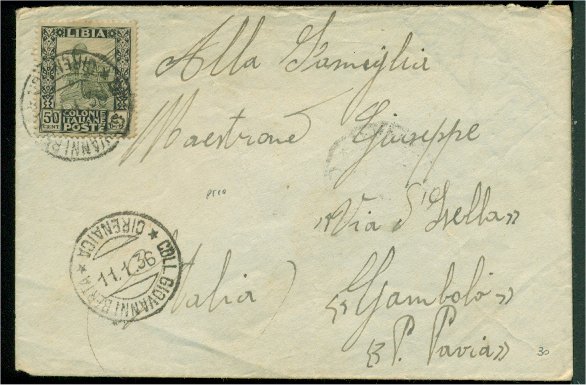 LIBIA
50 CENT
COLONIE ITALIANE
POSTE
Alla Famiglia
Maestrone Giuseppe
Via d'Isella
(Italia)
Gambolò
P. Pavia
COLL. GIOVANNI BERTA ★ CIRENAICA ★
11.1.36
30